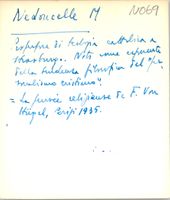 Nedoncelle M
N069
Professore di teologia cattolica a
Strasburgo. Noto come esponente
della tendenza filosofica del "per-
sonalismo cristiano".
= La pensée religieuse de F. Von
Hügel, Paris 1935.